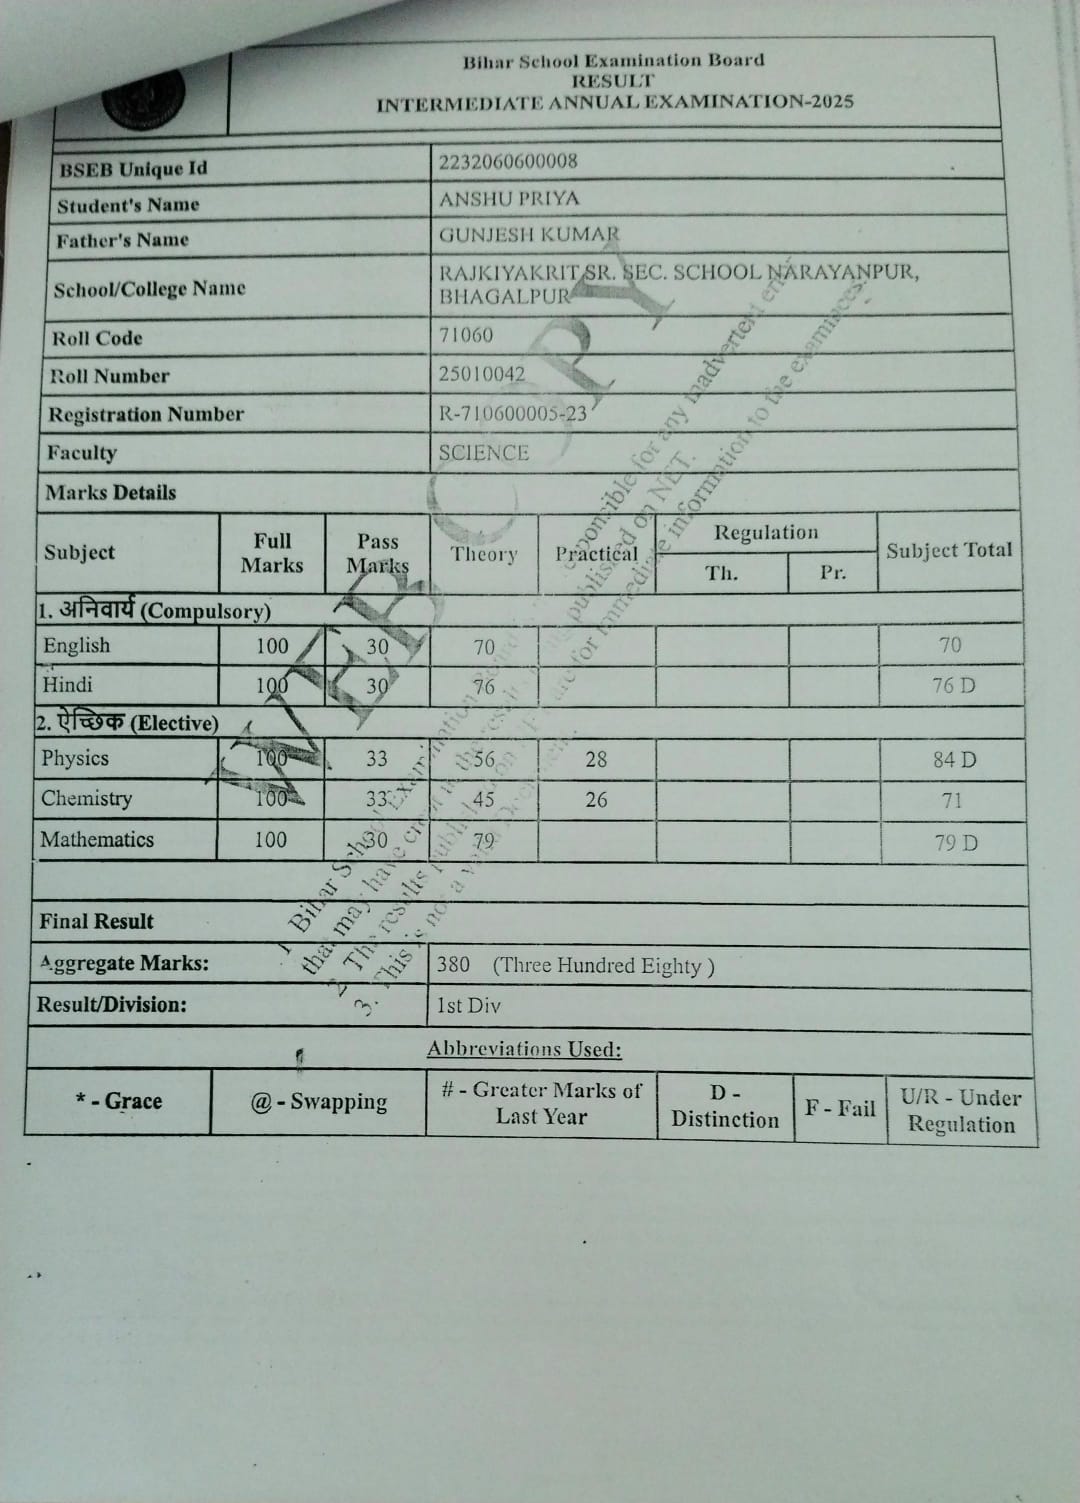 Bihar School Examination Board
RESULT
INTERMEDIATE ANNUAL EXAMINATION-2025
BSEB Unique Id 2232060600008
Student's Name ANSHU PRIYA
Father's Name GUNJESH KUMAR
School/College Name RAJKIYAKRIT SR. SEC. SCHOOL NARAYANPUR,
BHAGALPUR
Roll Code 71060
Roll Number 25010042
Registration Number R-710600005-23
Faculty SCIENCE
Marks Details
Subject Full Marks Pass Marks Theory Practical Regulation Th. Pr. Subject Total
1. अनिवार्य (Compulsory)
English 100 30 70 70
Hindi 100 30 76 76 D
2. ऐच्छिक (Elective)
Physics 100 33 56 28 84 D
Chemistry 100 33 45 26 71
Mathematics 100 30 79 79 D
Final Result
Aggregate Marks: 380 (Three Hundred Eighty )
Result/Division: 1st Div
Abbreviations Used:
* - Grace @ - Swapping # - Greater Marks of Last Year D - Distinction F - Fail U/R - Under Regulation
WEB COPY
1. Bihar School Examination responsible for any inadvertent
that may have crept in the results published on NET.
2. The results published on are for immediate information to the examinees.
3. This is not a